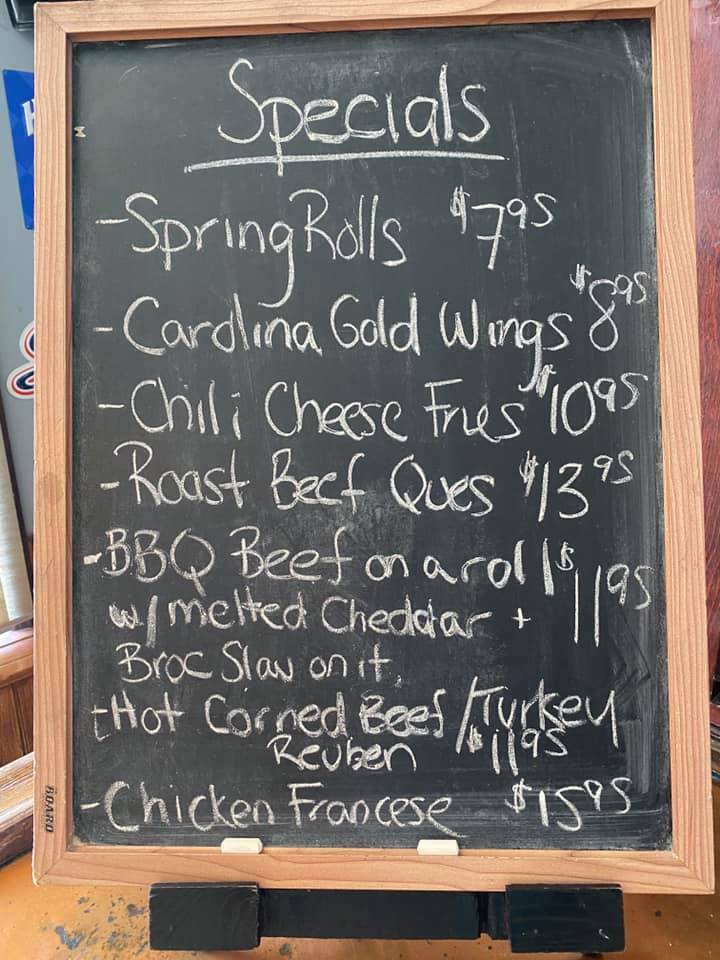 Specials
- Spring Rolls $7 95
- Carolina Gold Wings $8 95
- Chili Cheese Fries $10 95
- Roast Beef Ques $13 95
- BBQ Beef on a roll $11 95
w/ melted Cheddar +
Broc Slaw on it.
- Hot Corned Beef / Turkey
Reuben $11 95
- Chicken Francese $15 95
BOARD